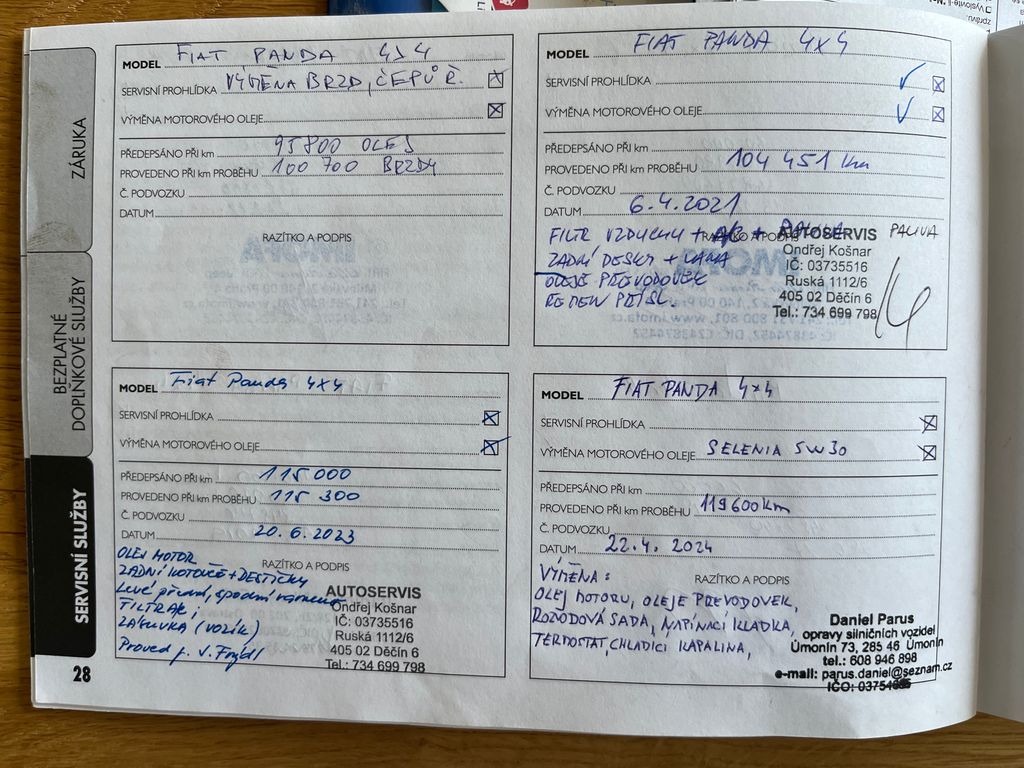 ZÁRUKA
BEZPLATNÉ
DOPLŇKOVÉ SLUŽBY
SERVISNÍ SLUŽBY
28
MODEL FIAT PANDA 4J4
SERVISNÍ PROHLÍDKA VÝMĚNA BRZD, ČEPŮ Ř.
VÝMĚNA MOTOROVÉHO OLEJE
PŘEDEPSÁNO PŘI km 95800 OLEJ
PROVEDENO PŘI km PROBĚHU 100 700 BRZDY
Č. PODVOZKU
DATUM
RAZÍTKO A PODPIS
MODEL FIAT PANDA 4x4
SERVISNÍ PROHLÍDKA
VÝMĚNA MOTOROVÉHO OLEJE
PŘEDEPSÁNO PŘI km
PROVEDENO PŘI km PROBĚHU 104 451 km
Č. PODVOZKU
DATUM 6.4.2021
FILTR VZDUCHU + + PALIVA
ZADNÍ DESKY +
OLEJE PŘEVODOVEK
ŘEMEN PŘÍSL.
RAZÍTKO A PODPIS
AUTOSERVIS
Ondřej Košnar
IČ: 03735516
Ruská 1112/6
405 02 Děčín 6
Tel.: 734 699 798
MODEL Fiat Panda 4x4
SERVISNÍ PROHLÍDKA
VÝMĚNA MOTOROVÉHO OLEJE
PŘEDEPSÁNO PŘI km 115 000
PROVEDENO PŘI km PROBĚHU 115 300
Č. PODVOZKU
DATUM 20.6.2023
RAZÍTKO A PODPIS
OLEJ MOTOR
ZADNÍ KOTOUČE + DESTIČKY
Levé přední, spodní rameno
FILTRAK;
ZÁSUVKA (VOZÍK)
Proved p. V. Frýdl
AUTOSERVIS
Ondřej Košnar
IČ: 03735516
Ruská 1112/6
405 02 Děčín 6
Tel.: 734 699 798
MODEL FIAT PANDA 4x4
SERVISNÍ PROHLÍDKA
VÝMĚNA MOTOROVÉHO OLEJE SELENIA 5W30
PŘEDEPSÁNO PŘI km
PROVEDENO PŘI km PROBĚHU 119600km
Č. PODVOZKU
DATUM 22.4. 2024
RAZÍTKO A PODPIS
VÝMĚNA:
OLEJ MOTORU, OLEJE PŘEVODOVEK,
ROZVODOVÁ SADA, NAPÍNACÍ KLADKA,
TERMOSTAT, CHLADÍCÍ KAPALINA,
Daniel Parus
opravy silničních vozidel
Úmonín 73, 285 46 Úmonín
tel.: 608 946 898
e-mail: parus.daniel@seznam.cz